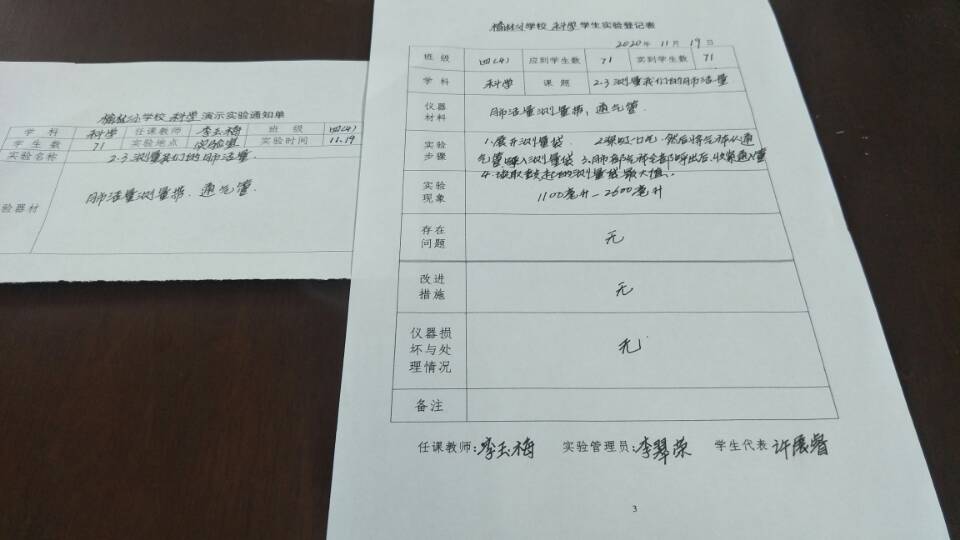 学校 科学 演示实验通知单
学 科 科学 任课教师 李玉梅 班 级 四(4)
学 生 数 71 实验地点 实验室 实验时间 11.19
实验名称 2.3 测量我们的肺活量
验器材 肺活量测量袋、通气管
学校 科学 学生实验登记表
2020 年 11 月 19 日
班 级 四(4) 应到学生数 71 实到学生数 71
学 科 科学 课 题 2.3 测量我们的肺活量
仪器材料 肺活量测量袋、通气管
实验步骤 1.展开测量袋 2.深吸一口气,然后将气体从通
气管吹入测量袋 3.肺部气体全部呼出后,收紧通气管
4.读取数据
实验现象 1100毫升—2600毫升
存在问题 无
改进措施 无
仪器损坏与处理情况 无
备注
任课教师:李玉梅 实验管理员:李翠荣 学生代表 许展睿
3